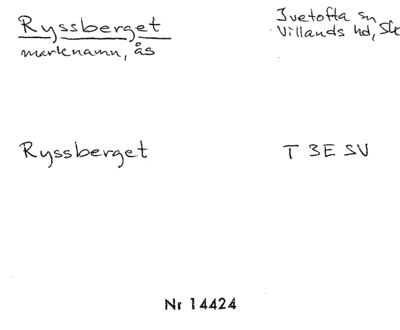 Ryssberget
marknamn, ås
Ivetofta sn
Villands hd, Sk
Ryssberget
T 3E SV
Nr 14424